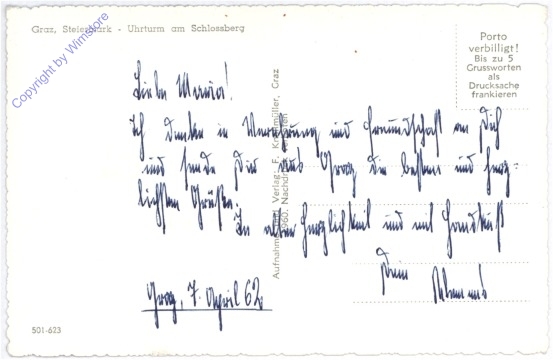 Graz, Steiermark - Uhrturm am Schlossberg
Copyright by Wimstore
Porto
verbilligt!
Bis zu 5
Grussworten
als
Drucksache
frankieren
Liebe Maria!
Ich denke in Verehrung und Freundschaft an Dich
und sende Dir aus Graz die besten und herz-
lichsten Grüße.
In aller Herzlichkeit und mit Handkuß
Dein
Graz, 7. April 62
Aufnahme und Verlag: F. Knollmüller, Graz
1960. Nachdruck verboten
501-623